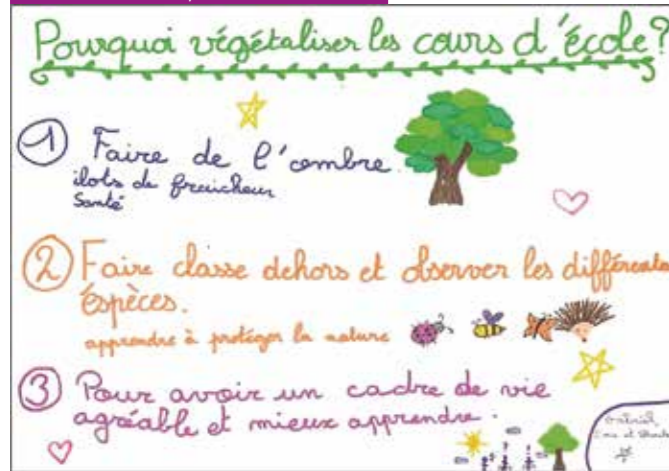 Pourquoi végétaliser les cours d'école?
1 Faire de l'ombre
ilots de fraicheur
Santé
2 Faire classe dehors et observer les différentes
éspèces.
apprendre à protéger la nature
3 Pour avoir un cadre de vie
agréable et mieux apprendre.